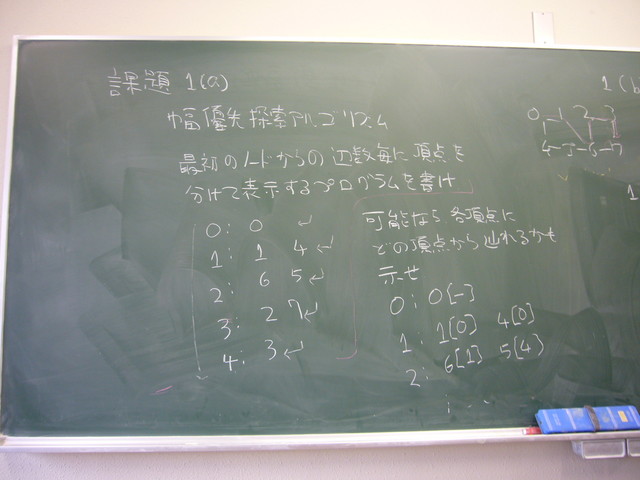 課題 1(a)
幅優先探索アルゴリズム
最初のノードからの辺数毎に頂点を
分けて表示するプログラムを書け
0: 0 ↵
1: 1 4 ↵
2: 6 5 ↵
3: 2 7 ↵
4: 3 ↵
可能なら各頂点に
どの頂点から辿れるかも
示せ
0: 0[-]
1: 1[0] 4[0]
2: 6[1] 5[4]
1(b
0 1 2 3
4-5-6-7
1